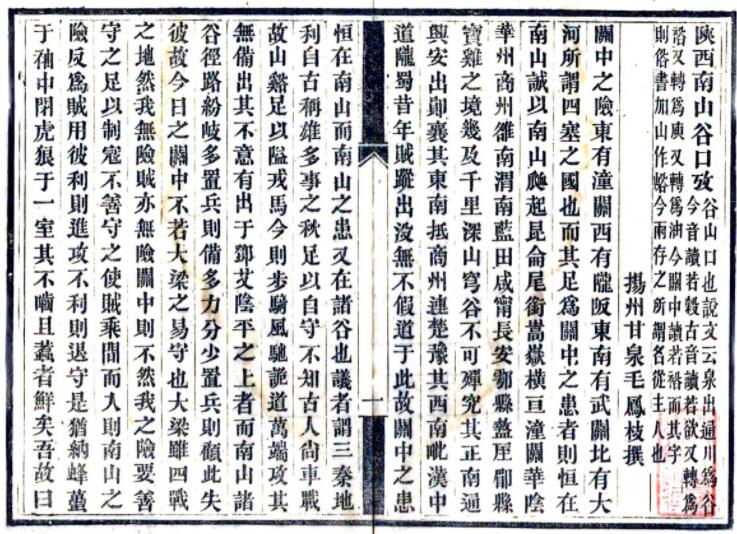 陝西南山谷口攷
谷山口也說文云泉出通川爲谷
今音讀若穀古音讀若欲又轉爲
又轉爲庾又轉爲油今關中讀若裕而其字
則俗書加山作峪今兩存之所謂名從主人也
揚州甘泉毛鳳枝撰
關中之險東有潼關西有隴阪東南有武關北有大
河所謂四塞之國也而其足爲關中之患者則恒在
南山誠以南山起昆侖尾銜嵩嶽橫亘潼關華陰
華州商州雒南渭南藍田咸甯長安鄠縣盩厔郿縣
寶雞之境幾及千里深山窮谷不可殫究其正南通
興安出鄖襄其東南抵商州連楚豫其西南毗漢中
道隴蜀昔年賊蹤出沒無不假道于此故關中之患
一
恒在南山而南山之患又在諸谷也議者謂三秦地
利自古稱雄多事之秋足以自守不知古人尙車戰
故山谿足以隘戎馬今則步騎風馳詭道萬端攻其
無備出其不意有出于鄧艾陰平之上者而南山諸
谷徑路紛岐多置兵則備多力分少置兵則顧此失
彼故今日之關中不若大梁之易守也大梁雖四戰
之地然我無險賊亦無險關中則不然我之險要善
守之足以制寇不善守之使賊乘間而入則南山之
險反爲賊用彼利則進攻不利則退守是猶納蜂蠆
于袖中閉虎狼于一室其不嚙且蠚者鮮矣吾故曰